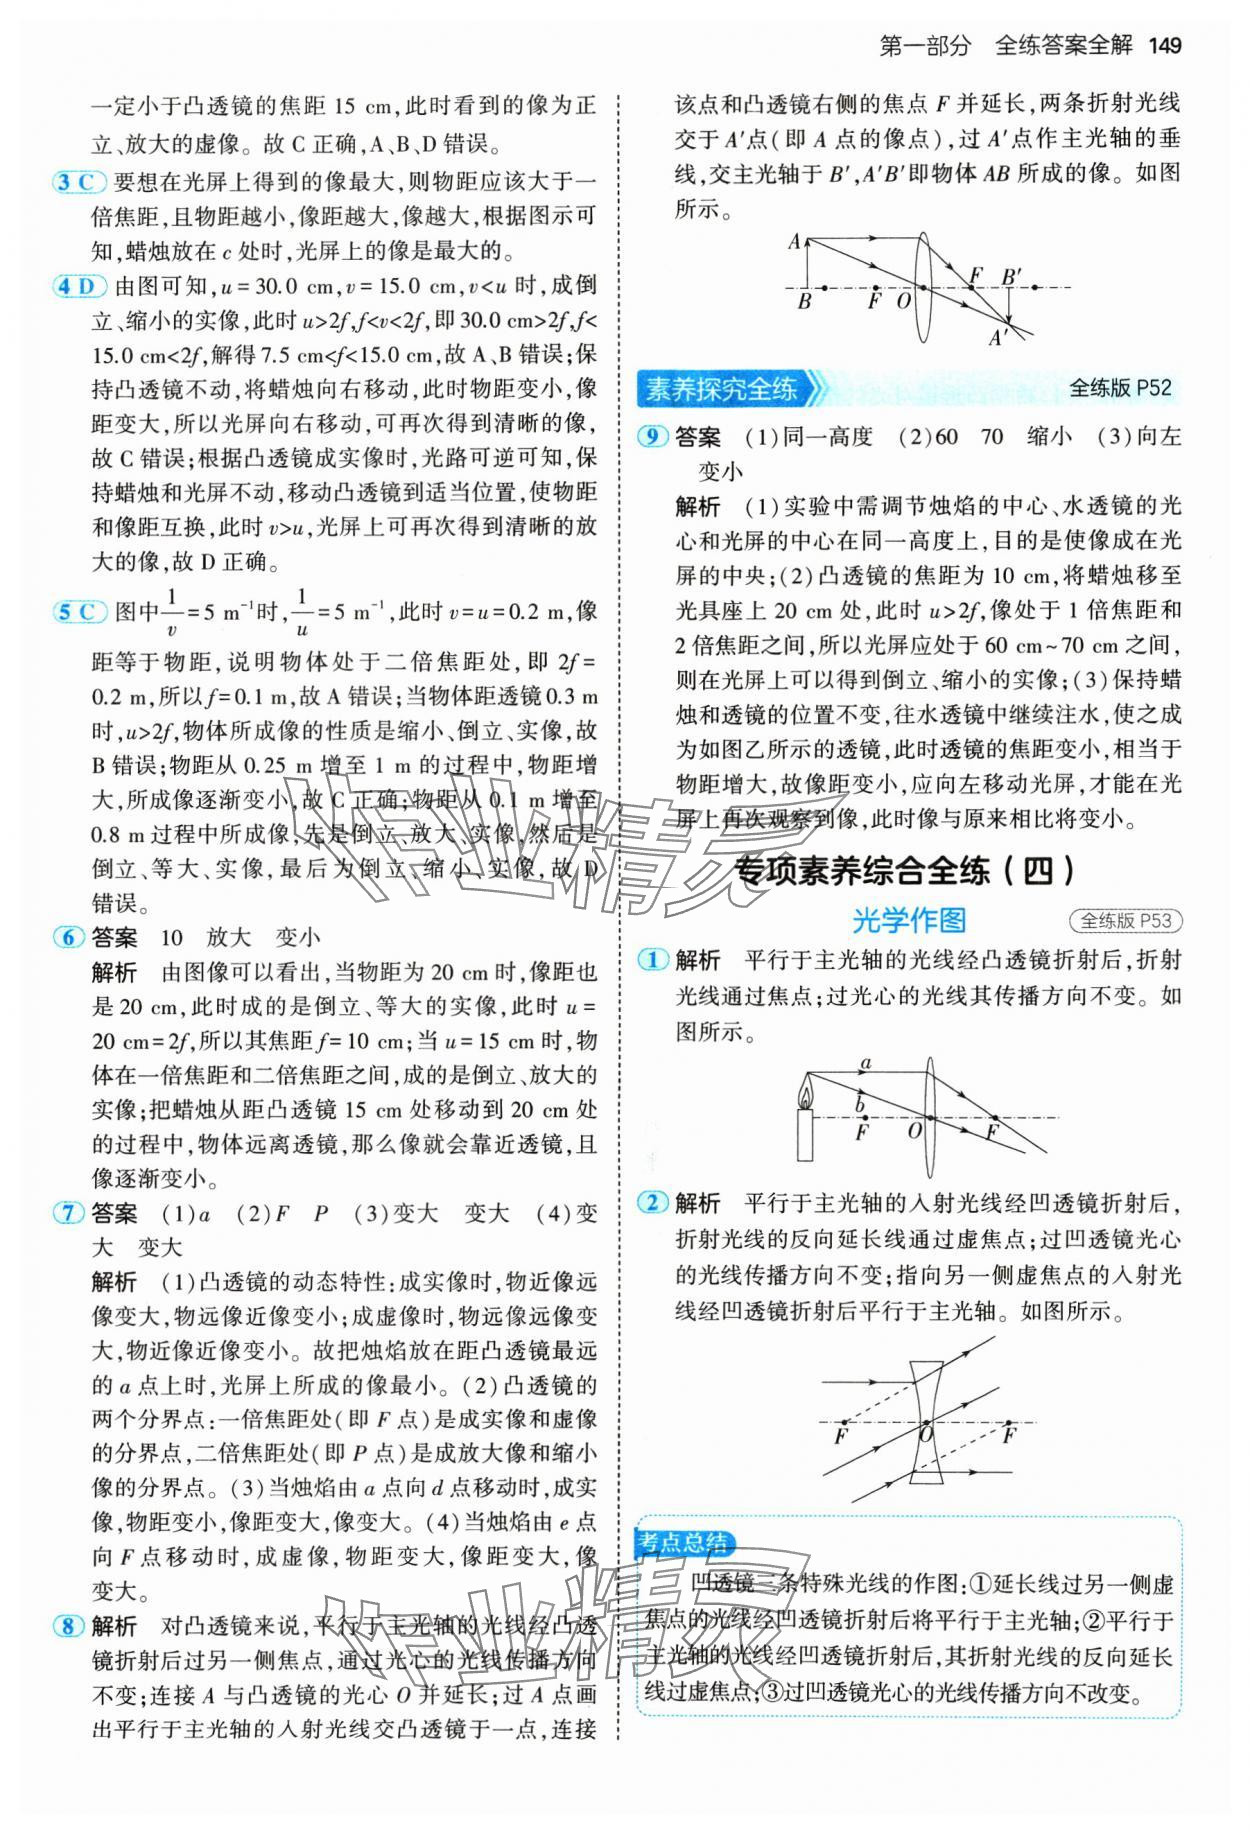 第一部分 全练答案全解 149
一定小于凸透镜的焦距 15 cm,此时看到的像为正
立、放大的虚像。故 C 正确,A、B、D 错误。
3 C 要想在光屏上得到的像最大,则物距应该大于一
倍焦距,且物距越小,像距越大,像越大,根据图示可
知,蜡烛放在 c 处时,光屏上的像是最大的。
4 D 由图可知,u = 30.0 cm,v = 15.0 cm,v<u 时,成倒
立、缩小的实像,此时 u>2f,f<v<2f,即 30.0 cm>2f,f<
15.0 cm<2f,解得 7.5 cm<f<15.0 cm,故 A、B 错误;保
持凸透镜不动,将蜡烛向右移动,此时物距变小,像
距变大,所以光屏向右移动,可再次得到清晰的像,
故 C 错误;根据凸透镜成实像时,光路可逆可知,保
持蜡烛和光屏不动,移动凸透镜到适当位置,使物距
和像距互换,此时 v>u,光屏上可再次得到清晰的放
大的像,故 D 正确。
5 C 图中1/v=5 m⁻¹时,1/u=5 m⁻¹,此时 v=u=0.2 m,像
距等于物距,说明物体处于二倍焦距处,即 2f=
0.2 m,所以 f=0.1 m,故 A 错误;当物体距透镜 0.3 m
时,u>2f,物体所成像的性质是缩小、倒立、实像,故
B 错误;物距从 0.25 m 增至 1 m 的过程中,物距增
大,所成像逐渐变小,故 C 正确;物距从 0.1 m 增至
0.8 m 过程中所成像,先是倒立、放大、实像,然后是
倒立、等大、实像,最后为倒立、缩小、实像,故 D
错误。
6 答案 10 放大 变小
解析 由图像可以看出,当物距为 20 cm 时,像距也
是 20 cm,此时成的是倒立、等大的实像,此时 u=
20 cm=2f,所以其焦距 f=10 cm;当 u=15 cm 时,物
体在一倍焦距和二倍焦距之间,成的是倒立、放大的
实像;把蜡烛从距凸透镜 15 cm 处移动到 20 cm 处
的过程中,物体远离透镜,那么像就会靠近透镜,且
像逐渐变小。
7 答案 (1)a (2)F P (3)变大 变大 (4)变
大 变大
解析 (1)凸透镜的动态特性:成实像时,物近像远
像变大,物远像近像变小;成虚像时,物远像远像变
大,物近像近像变小。故把烛焰放在距凸透镜最远
的 a 点上时,光屏上所成的像最小。(2)凸透镜的
两个分界点:一倍焦距处(即 F 点)是成实像和虚像
的分界点,二倍焦距处(即 P 点)是成放大像和缩小
像的分界点。(3)当烛焰由 a 点向 d 点移动时,成实
像,物距变小,像距变大,像变大。(4)当烛焰由 e 点
向 F 点移动时,成虚像,物距变大,像距变大,像
变大。
8 解析 对凸透镜来说,平行于主光轴的光线经凸透
镜折射后过另一侧焦点,通过光心的光线传播方向
不变;连接 A 与凸透镜的光心 O 并延长;过 A 点画
出平行于主光轴的入射光线交凸透镜于一点,连接
该点和凸透镜右侧的焦点 F 并延长,两条折射光线
交于 A′点(即 A 点的像点),过 A′点作主光轴的垂
线,交主光轴于 B′,A′B′即物体 AB 所成的像。如图
所示。
A
F B′
B F O
A′
素养探究全练 全练版 P52
9 答案 (1)同一高度 (2)60 70 缩小 (3)向左
变小
解析 (1)实验中需调节烛焰的中心、水透镜的光
心和光屏的中心在同一高度上,目的是使像成在光
屏的中央;(2)凸透镜的焦距为 10 cm,将蜡烛移至
光具座上 20 cm 处,此时 u>2f,像处于 1 倍焦距和
2 倍焦距之间,所以光屏应处于 60 cm~70 cm 之间,
则在光屏上可以得到倒立、缩小的实像;(3)保持蜡
烛和透镜的位置不变,往水透镜中继续注水,使之成
为如图乙所示的透镜,此时透镜的焦距变小,相当于
物距增大,故像距变小,应向左移动光屏,才能在光
屏上再次观察到像,此时像与原来相比将变小。
专项素养综合全练(四)
光学作图 全练版 P53
1 解析 平行于主光轴的光线经凸透镜折射后,折射
光线通过焦点;过光心的光线其传播方向不变。如
图所示。
a
b
F O F
2 解析 平行于主光轴的入射光线经凹透镜折射后,
折射光线的反向延长线通过虚焦点;过凹透镜光心
的光线传播方向不变;指向另一侧虚焦点的入射光
线经凹透镜折射后平行于主光轴。如图所示。
F O F
考点总结
凹透镜三条特殊光线的作图:①延长线过另一侧虚
焦点的光线经凹透镜折射后将平行于主光轴;②平行于
主光轴的光线经凹透镜折射后,其折射光线的反向延长
线过虚焦点;③过凹透镜光心的光线传播方向不改变。
作业精灵
作业精灵